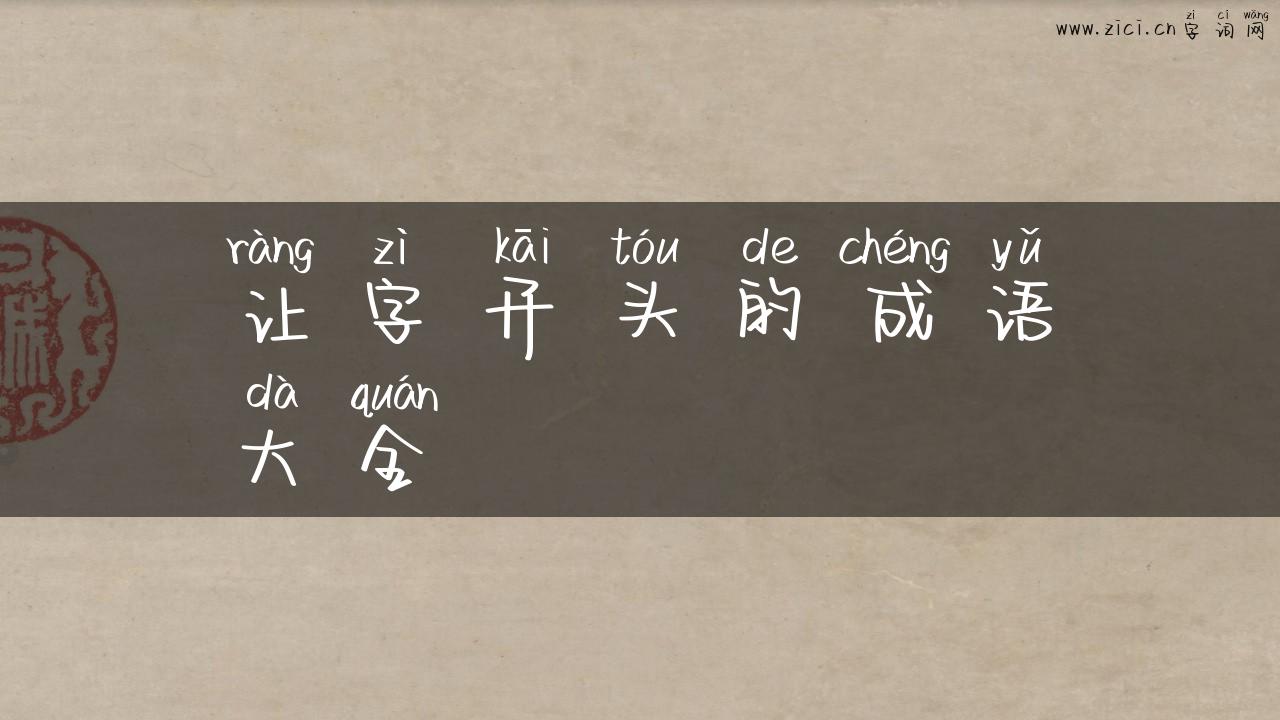 zì cí wǎng
www.zici.cn 字词网
ràng zì kāi tóu de chéng yǔ
让字开头的成语
dà quán
大全